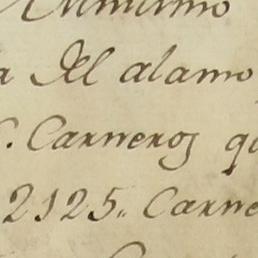 a del alamo
Carneros
2125.. Carne